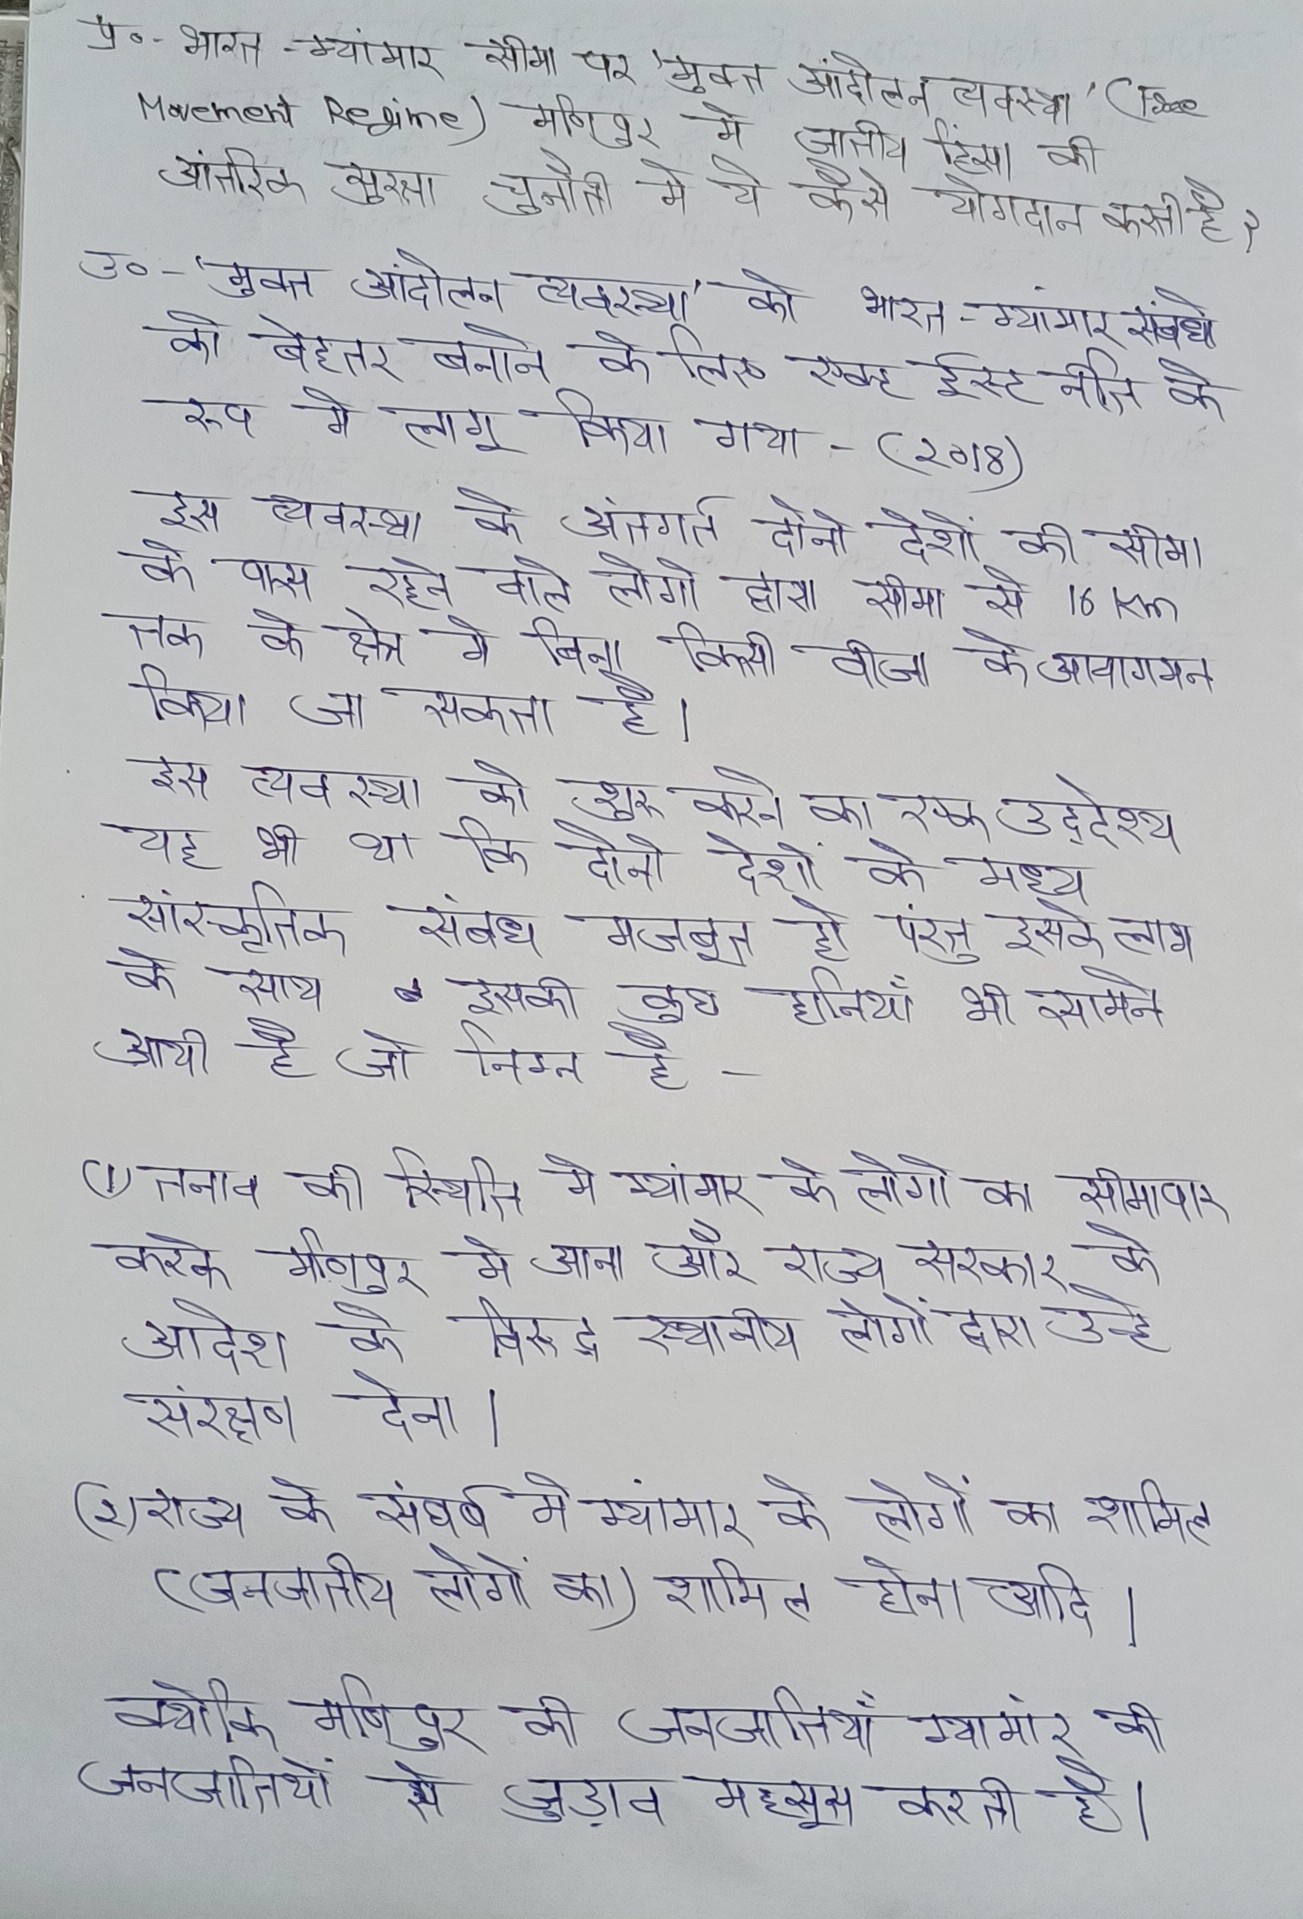 प्र०- भारत-म्यांमार सीमा पर 'मुक्त आंदोलन व्यवस्था' (Free
Movement Regime) मणिपुर मे जातीय हिंसा की
आंतरिक सुरक्षा चुनौती मे ये कैसे योगदान करती है?
उ०- 'मुक्त आंदोलन व्यवस्था' को भारत-म्यांमार संबंधो
को बेहतर बनाने के लिए एक्ट ईस्ट नीति के
रूप मे लागू किया गया - (2018)
इस व्यवस्था के अंतगर्त दोनो देशों की सीमा
के पास रहने वाले लोगो द्वारा सीमा से 16 Km
तक के क्षेत्र मे बिना किसी वीजा के आवागमन
किया जा सकता है।
इस व्यवस्था को शुरू करने का एक उद्देश्य
यह भी था कि दोनो देशों के मध्य
सांस्कृतिक संबध मजबूत हो परंतु इसके लाभ
के साथ इसकी कुछ हानियाँ भी सामने
आयी है जो निम्न है -
(1) तनाव की स्थिति मे म्यांमार के लोगो का सीमापार
करके मणिपुर मे आना और राज्य सरकार के
आदेश के विरूद्ध स्थानीय लोगों द्वारा उन्हे
संरक्षण देना।
(2) राज्य के संघर्ष मे म्यांमार के लोगों का शामिल
(जनजातीय लोगों का) शामिल होना आदि।
क्योकि मणिपुर की जनजातियाँ म्यामांर की
जनजातियों से जुड़ाव महसूस करती है।